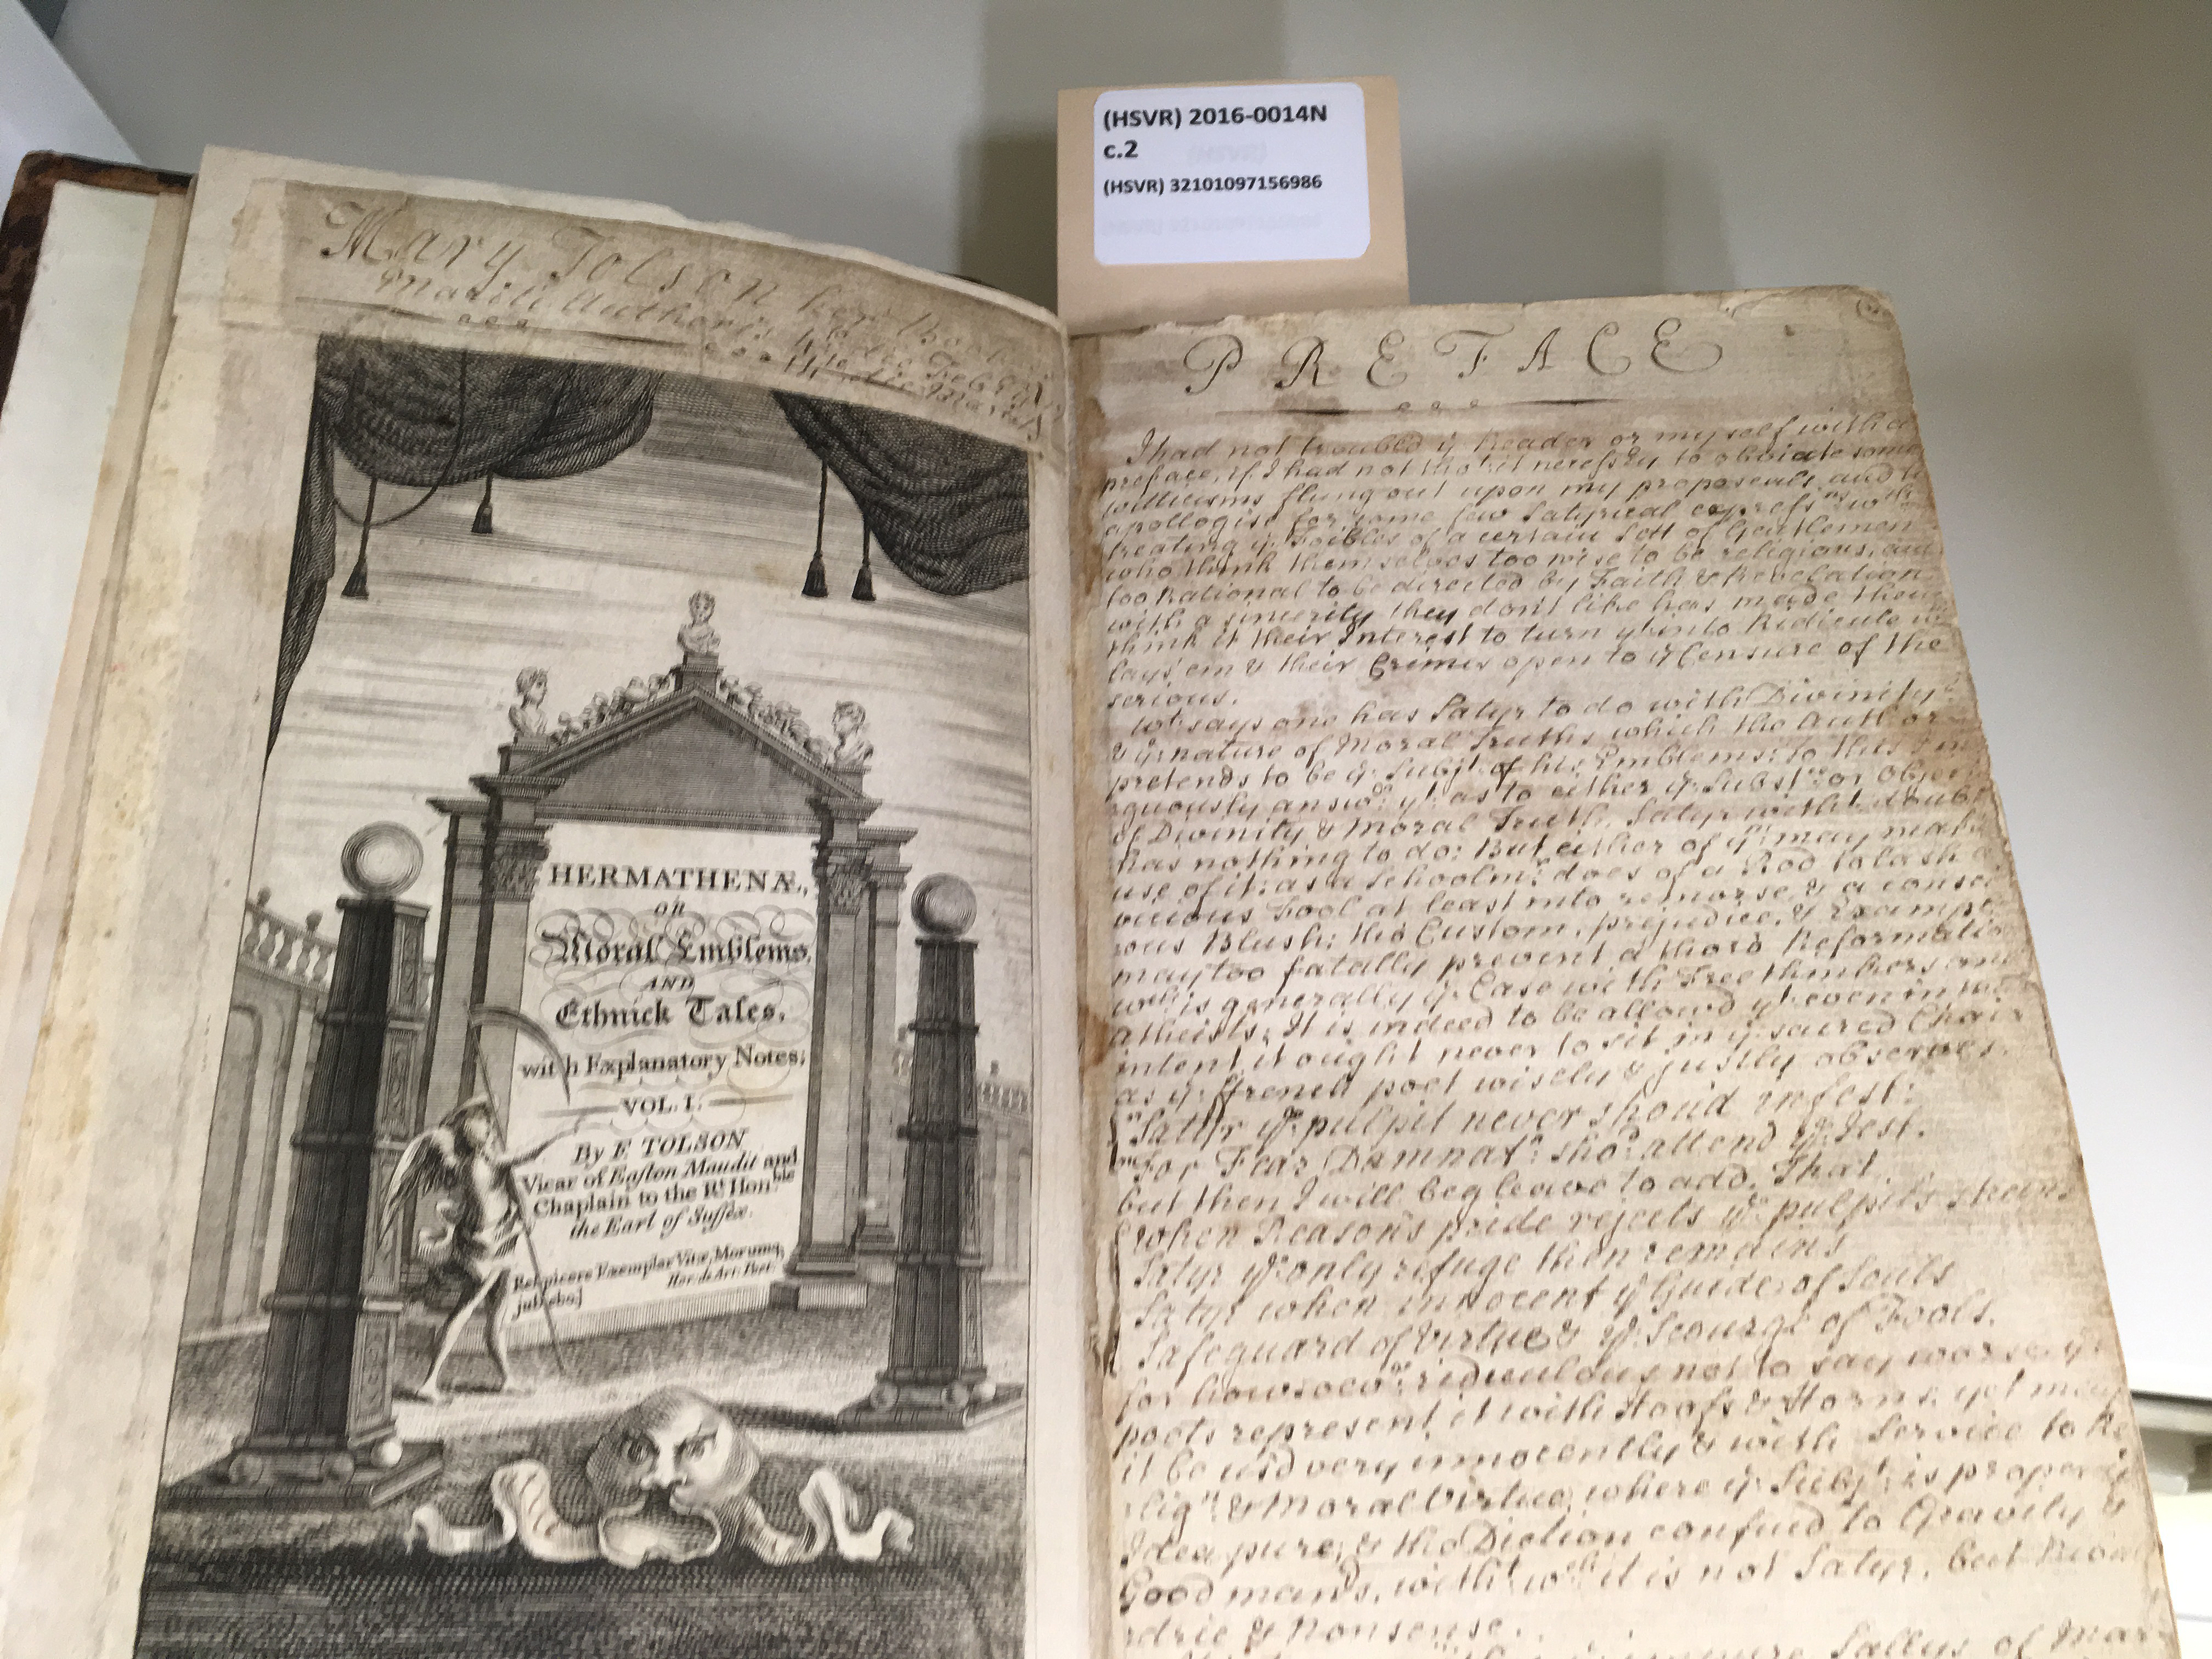 (HSVR) 2016-0014N
c.2
(HSVR) 32101097156986
Mary Tolson her Book
HERMATHENÆ,
OR
Moral Emblems,
AND
Ethnick Tales,
with Explanatory Notes;
VOL. I.
By F TOLSON
Vicar of Easton Maudit and
Chaplain to the Rt. Honble
the Earl of Sussex.
Respicere Exemplar Vitæ, Morumq
Hor. de Art: Poet.
jubebo.]
PREFACE
I had not troubled ye Reader or my self with a
preface, if I had not tho't it necessry to obviate some
witticisms flung out upon my proposeals and to
apollogise for some few Satyrical
treating ye Foibles of a certain Sett of Gentlemen
who think themselves too wise to be religious, and
too Rational to be directed by Faith & Revelation
with a sincerity they don't like has made them
think it their Interest to turn yt into Ridicule
lays 'em & their Crimes open to ye Censure of the
serious.
Wt says one has Satyr to do with Divinity
& ye nature of Moral Truths which the Author
pretends to be ye Subjt of his Emblems: to this
yt as to either ye Substce or Object
of Divinity & Moral Truth, Satyr witht doubt
has nothing to do: But either of ym may make
use of it: as a Schoolmr does of a Rod to lash a
vicious Fool at least into remorse, & a consci
ous Blush; tho Custom, prejudice, & Example
may too fatally prevent a thoro Reformatio
wch is generally ye Case with Free thinkers and
atheists; It is indeed to be allowd yt even in
intent it ought never to sit in ye sacred Chair
as ye ffrench poet wisely & justly observes.
Satyr ye pulpit never should infest:
For Fear Damnatn shod attend ye Jest.
but then I will beg leave to add, That.
When Reason's pride rejects ye pulpit's
Satyr ye only refuge then remains
Satyr when innocent ye Guide of Souls
Safeguard of Virtue & ye Scourge of Fools.
for howsoevr ridiculous not to say worse ye
poets represent it with Hoofs & Horns, yet may
it be us'd very innocently & with Service to Re
lign & Moral Virtue, where ye Subjt is proper ye
Idea pure, & the Diction confin'd to Gravity &
Good mans, witht wch it is not Satyr, but Ribal
drie & Nonsense.
Sallys of